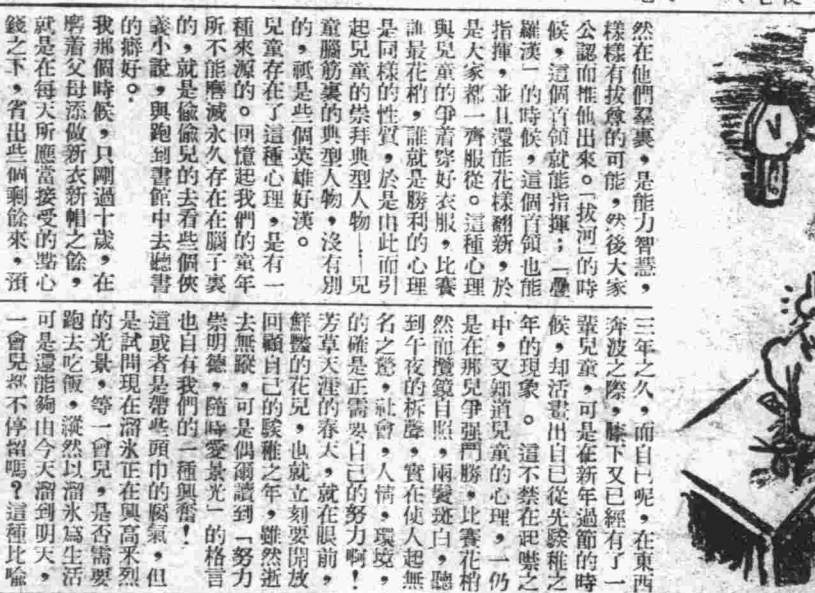 然在他們羣裏，是能力智慧，
樣樣有拔尊的可能，然後大家
公認而推他出來。「拔河」的時
候，這個首領就能指揮；「疊
羅漢」的時候，這個首領也能
指揮，並且還能花樣翻新，於
是大家都一齊服從。這種心理
與兒童的爭着穿好衣服，比賽
誰最花梢，誰就是勝利的心理
是同樣的性質，於是由此而引
起兒童的崇拜典型人物——兒
童腦筋裏的典型人物，沒有別
的，祇是些個英雄好漢。
兒童存在了這種心理，是有一
種來源的。回憶起我們的童年
所不能磨滅永久存在在腦子裏
的，就是偷偷兒的去看些個俠
義小說，與跑到書館中去聽書
的癖好。
我那個時候，只剛過十歲，在
磨着父母添做新衣新帽之餘，
就是在每天所應當接受的點心
錢之下，省出些個剩餘來，預
三年之久，而自己呢，在東西
奔波之際，膝下又已經有了一
輩兒童，可是在新年過節的時
候，却活畫出自己從先騃稚之
年的現象。這不禁在起噤之
中，又知道兒童的心理，一仍
是在那兒爭强鬥勝，比賽花梢
然而攬鏡自照，兩鬢斑白，聽
到午夜的柝聲，實在使人起無
名之驚，社會，人情，環境，
的確是正需要自己的努力啊！
芳草天涯的春天，就在眼前，
鮮豔的花兒，也就立刻要開放
回顧自己的騃稚之年，雖然逝
去無蹤，可是偶爾讀到「努力
崇明德，隨時愛景光」的格言
也自有我們的一種興奮！
這或者是帶些頭巾的腐氣，但
是試問現在溜氷正在興高釆烈
的光景，等一會兒，是否需要
跑去吃飯，縱然以溜氷爲生活
可是還能夠由今天溜到明天，
一會兒都不停留嗎？這種比喻